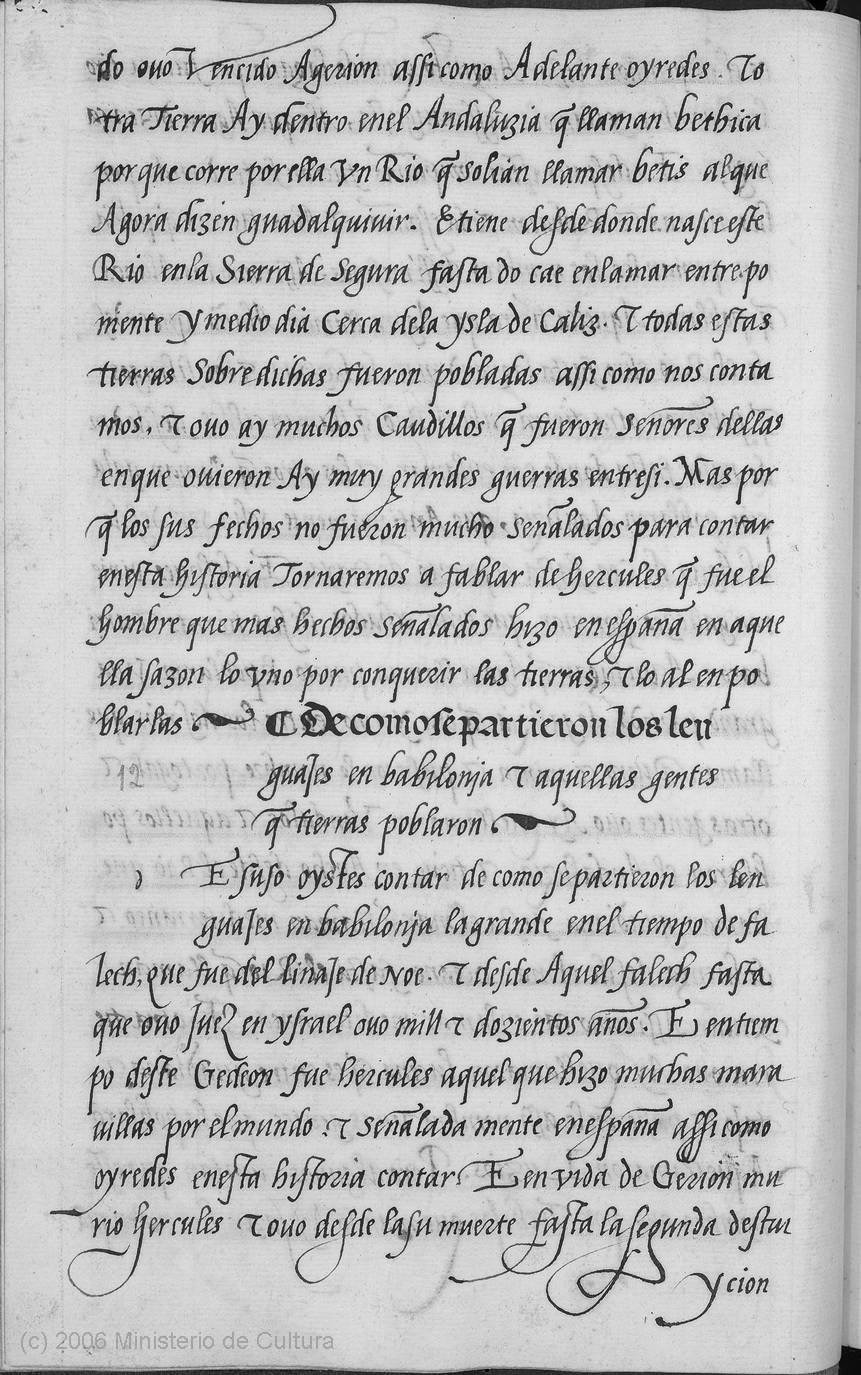 do ovo Vencido Agerion assi como Adelante oyredes. ⁊ o
tra Tierra Ay dentro enel Andaluzia q̃ llaman bethica
porque corre por ella Vn Rio q̃ solian llamar betis alque
Agora dizen guadalquivir. E tiene desde donde nasce este
Rio enla Sierra de Segura fasta do cae enlamar entre po
niente y medio dia Cerca dela ysla de Caliz. ⁊ todas estas
tierras Sobredichas fueron pobladas assi como nos conta
mos, ⁊ ovo ay muchos Caudillos q̃ fueron Senores dellas
enque ovieron Ay muy grandes guerras entresi. Mas por
q̃ los sus fechos no fueron mucho señalados para contar
enesta historia Tornaremos a fablar de hercules q̃ fue el
hombre que mas hechos señalados hizo en españa en aque
lla sazon lo vno por conquerir las tierras, ⁊ lo al en po
blarlas ¶ De como se partieron los len
12 guajes en babilonja ⁊ aquellas gentes
q̃ tierras poblaron
E suso oystes contar de como se partieron los len
guajes en babilonja la grande enel tiempo de fa
lech, que fue del linaje de Noe. ⁊ desde Aquel falech fasta
que ovo juez en ysrael ovo mill ⁊ dozientos años. E en tiem
po deste Gedeon fue hercules aquel que hizo muchas mara
villas por el mundo. ⁊ señalada mente en españa assi como
oyredes enesta historia contar. E en vida de Gerion mu
rio hercules ⁊ ovo desde lasu muerte fasta la segunda destru
ycion
(c) 2006 Ministerio de Cultura